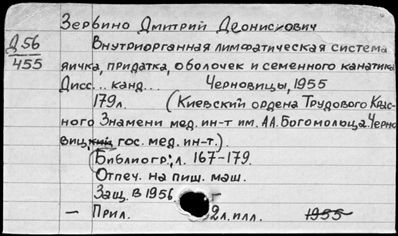 Зербино Дмитрий Деонисович
Д56
455
Внутриорганная лимфатическая система
яичка, придатка, оболочек и семенного канатика
Дисс... канд... Черновицы, 1955
179л. (Киевский ордена Трудового Крас-
ного Знамени мед. ин-т им. А.А. Богомольца. Черно-
виц. гос. мед. ин-т.).
(Библиогр: л. 167-179.
Отпеч. на пиш. маш.
Защ. в 1956
— Прил. 2л. илл. 1955